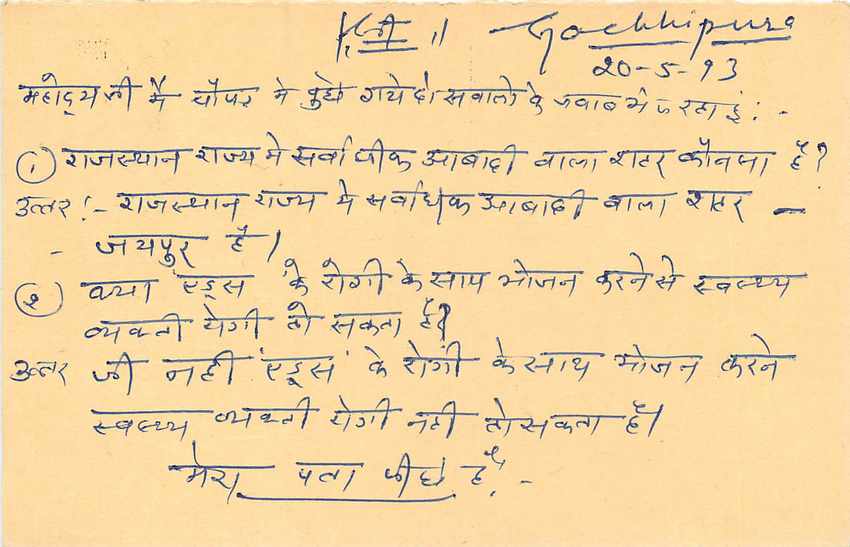 श्री ।। Gachhipura
20-5-93
महोदय जी मैं चौपर मे पुछे गये दो सवालो के जवाब भेज रहा हुं : -
(१) राजस्थान राज्य मे सर्वाधीक आबादी वाला शहर कौनसा है?
उत्तर :- राजस्थान राज्य मे सर्वाधिक आबादी वाला शहर -
- जयपुर है।
(२) क्या 'एड्स' के रोगी के साथ भोजन करने से स्वस्थ्य
व्यक्ती रोगी हो सकता है?
उत्तर जी नही 'एड्स' के रोगी के साथ भोजन करने
स्वस्थ्य व्यक्ती रोगी नही हो सकता है।
मेरा पता पीछे है। -